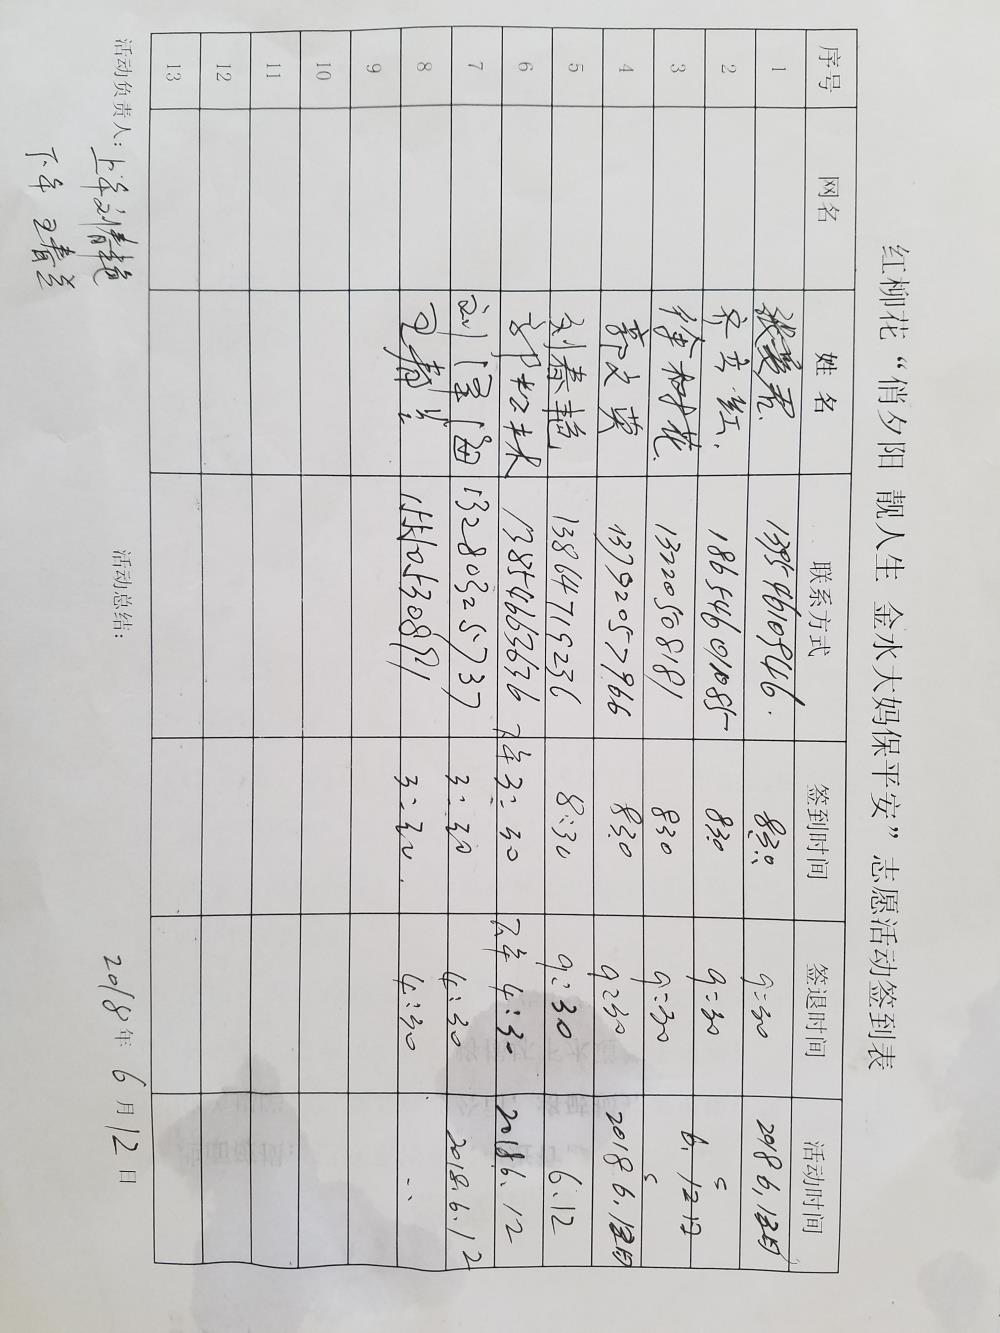 红柳花“俏夕阳 靓人生 金水大妈保平安”志愿活动签到表
序号 网名 姓名 联系方式 签到时间 签退时间 活动时间
1 13954610846. 8:30 9:30 2018 6.12日
2 18654601085 8:30 9:30
3 徐树花 13220508181 8:30 9:30 6.12日
4 郭文英 13792057966 8:30 9:30 2018 6.12日
5 刘春艳 13864719236 8:30 9:30 6.12
6 郭松林 13854663636 下午3:30 下午4:30 2018 6.12
7 13280325737 3:30 4:30 2018.6.12
8 王春兰 3:30. 4:30
9
10
11
12
13
活动负责人: 上午刘春艳 活动总结: 2018年6月12日
下午 王春兰